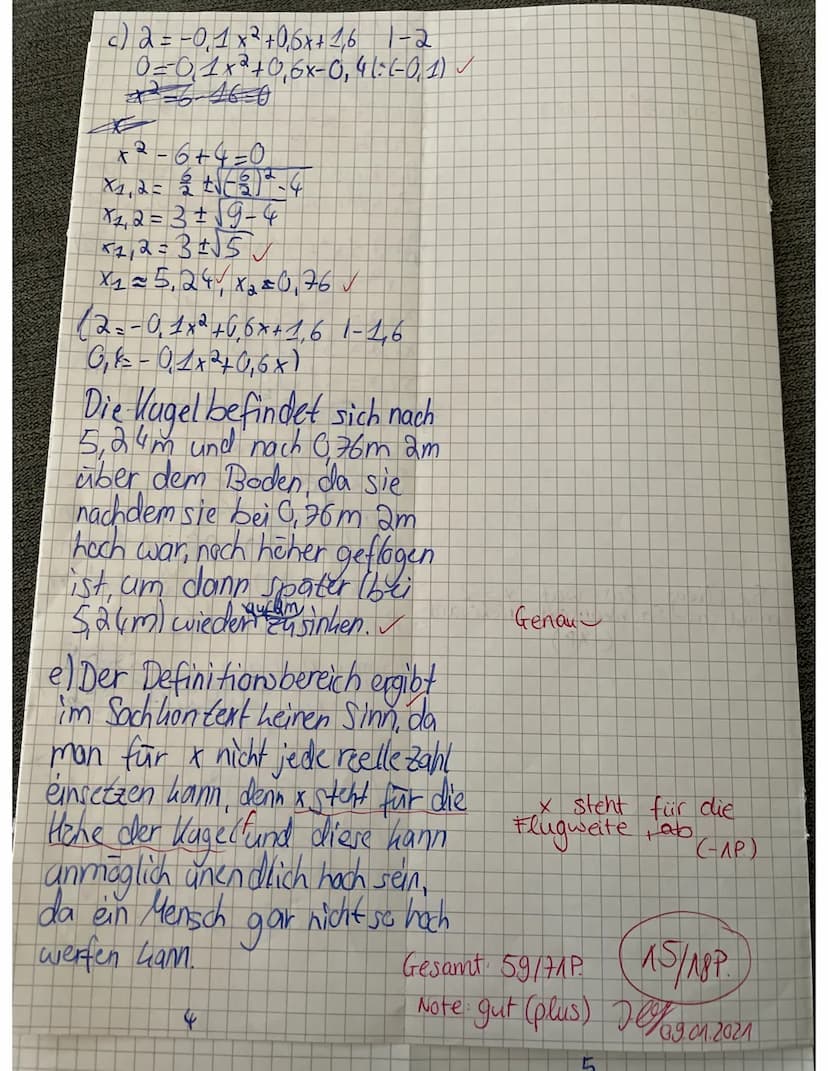 c) 2 = -0,1x² + 0,6x + 1,6 | -2
0 = -0,1x² + 0,6x - 0,4 |:(-0,1) ✓
x² - 6 + 4 = 0
x1,2 = 6/2 ± √(-6/2)² - 4
x1,2 = 3 ± √9 - 4
x1,2 = 3 ± √5 ✓
x1 ≈ 5,24 ✓, x2 ≈ 0,76 ✓
(2 = -0,1x² + 0,6x + 1,6 | -1,6
0,4 = -0,1x² + 0,6x)
Die Kugel befindet sich nach
5,24m und nach 0,76m 2m
über dem Boden, da sie
nachdem sie bei 0,76m 2m
hoch war, noch höher geflogen
ist, um dann später (bei
5,24m) wieder zu sinken. ✓
Genau
e) Der Definitionsbereich ergibt
im Sachkontext keinen Sinn, da
man für x nicht jede reelle Zahl
einsetzen kann, denn x steht für die
Höhe der Kugel f und diese kann
unmöglich unendlich hoch sein,
da ein Mensch gar nicht so hoch
werfen kann.
x steht für die
Flugweite, ab
(-1P)
15/18P.
Gesamt: 59/71P.
Note: gut (plus)
09.01.2021
4
5